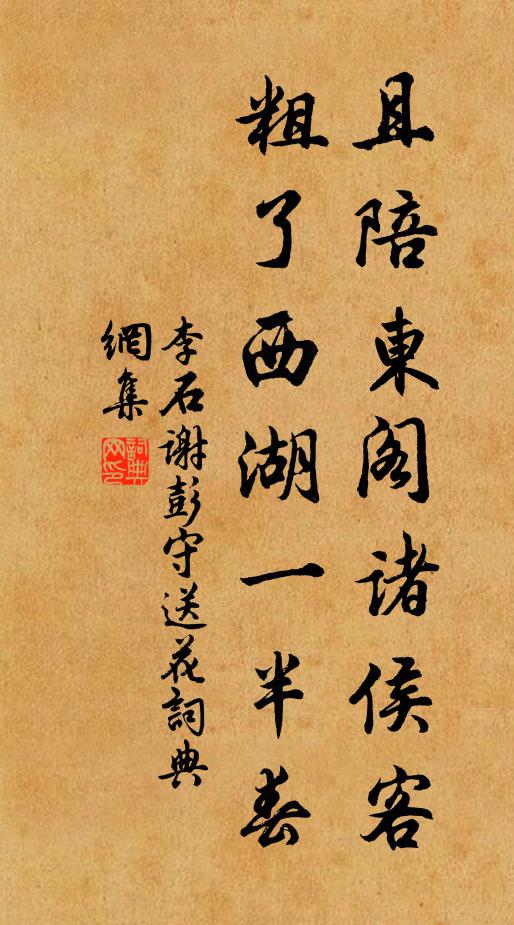 且陪東閣諸侯客
粗了西湖一半春
李石谢彭守送花詞典
網集
詞典
网印